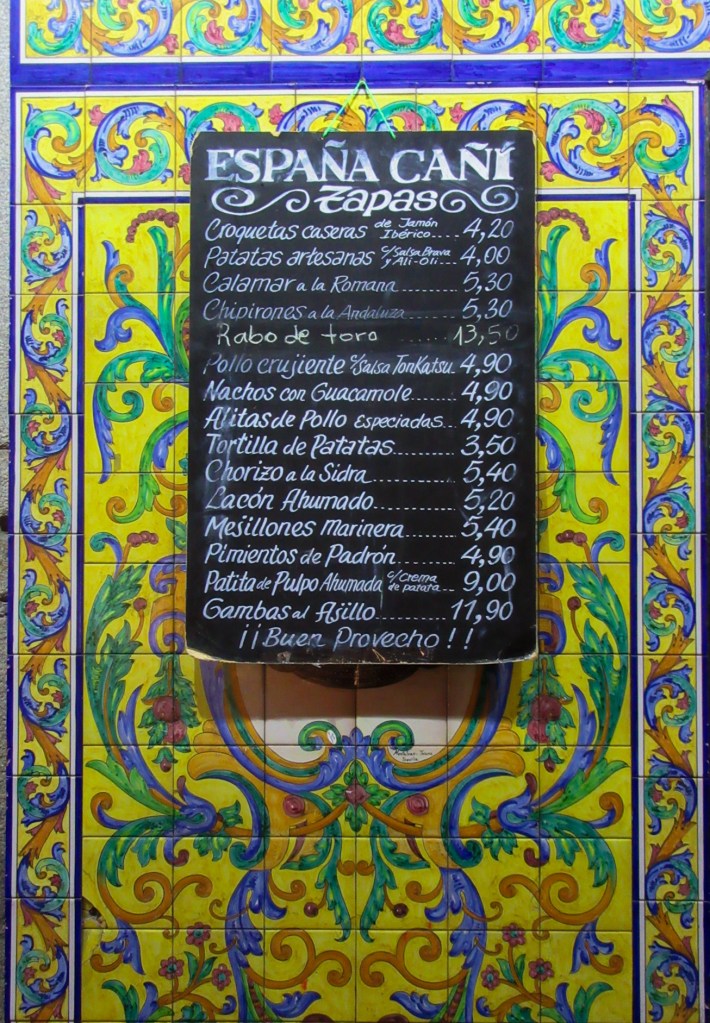 ESPAÑA CAÑÍ
Tapas
Croquetas caseras de Jamón Ibérico.... 4,20
Patatas artesanas c/Salsa Brava y Ali-Oli... 4,00
Calamar a la Romana........ 5,30
Chipirones a la Andaluza....... 5,30
Rabo de toro ........ 13,50
Pollo crujiente c/Salsa TonKatsu.. 4,90
Nachos con Guacamole....... 4,90
Alitas de Pollo Especiadas... 4,90
Tortilla de Patatas.......... 3,50
Chorizo a la Sidra............. 5,40
Lacón Ahumado............ 5,20
Mejillones Marinera........ 5,40
Pimientos de Padrón........ 4,90
Patita de Pulpo Ahumada c/Crema de patata.. 9,00
Gambas al Ajillo............ 11,90
¡¡Buen Provecho!!
Sevilla